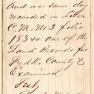 And was same day
recorded in Liber
C.M. No 3 folio
183 &c one of the
Land Records for
Fredk. County &
Examined